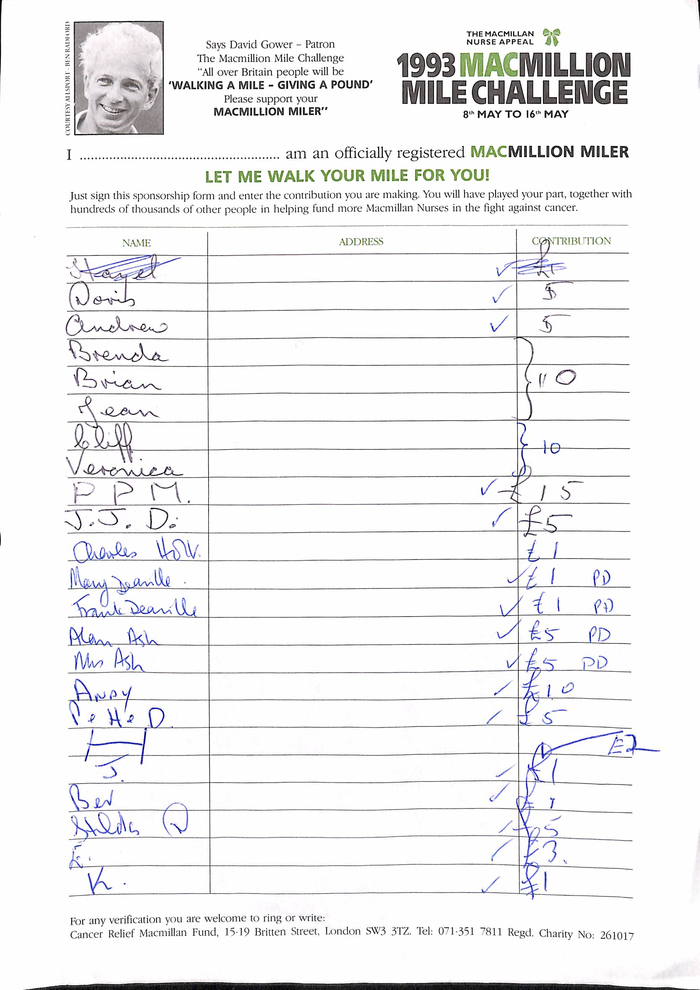 COURTESY ALLSPORT - BEN RADFORD
Says David Gower – Patron
The Macmillion Mile Challenge
"All over Britain people will be
'WALKING A MILE – GIVING A POUND'
Please support your
MACMILLION MILER"
THE MACMILLAN
NURSE APPEAL
1993 MACMILLION
MILE CHALLENGE
8th MAY TO 16th MAY
I ........................................................ am an officially registered MACMILLION MILER
LET ME WALK YOUR MILE FOR YOU!
Just sign this sponsorship form and enter the contribution you are making. You will have played your part, together with
hundreds of thousands of other people in helping fund more Macmillan Nurses in the fight against cancer.
NAME ADDRESS CONTRIBUTION
✓ £1
Doris ✓ 5
Andrew ✓ 5
Brenda
Brian 10
Jean
Cliff
Veronica 10
P P M. ✓ £15
J. J. D. ✓ £5
Charles £1
Mary Deaville ✓ £1 PD
Frank Deaville ✓ £1 PD
Alan Ash ✓ £5 PD
Mrs Ash ✓ £5 PD
Andy ✓ £10
✓ £5
H £2
J. ✓ £1
Bev ✓ £1
Hilda ✓ £5
E. ✓ £3.
K. ✓ £1
For any verification you are welcome to ring or write:
Cancer Relief Macmillan Fund, 15-19 Britten Street, London SW3 3TZ. Tel: 071-351 7811 Regd. Charity No: 261017